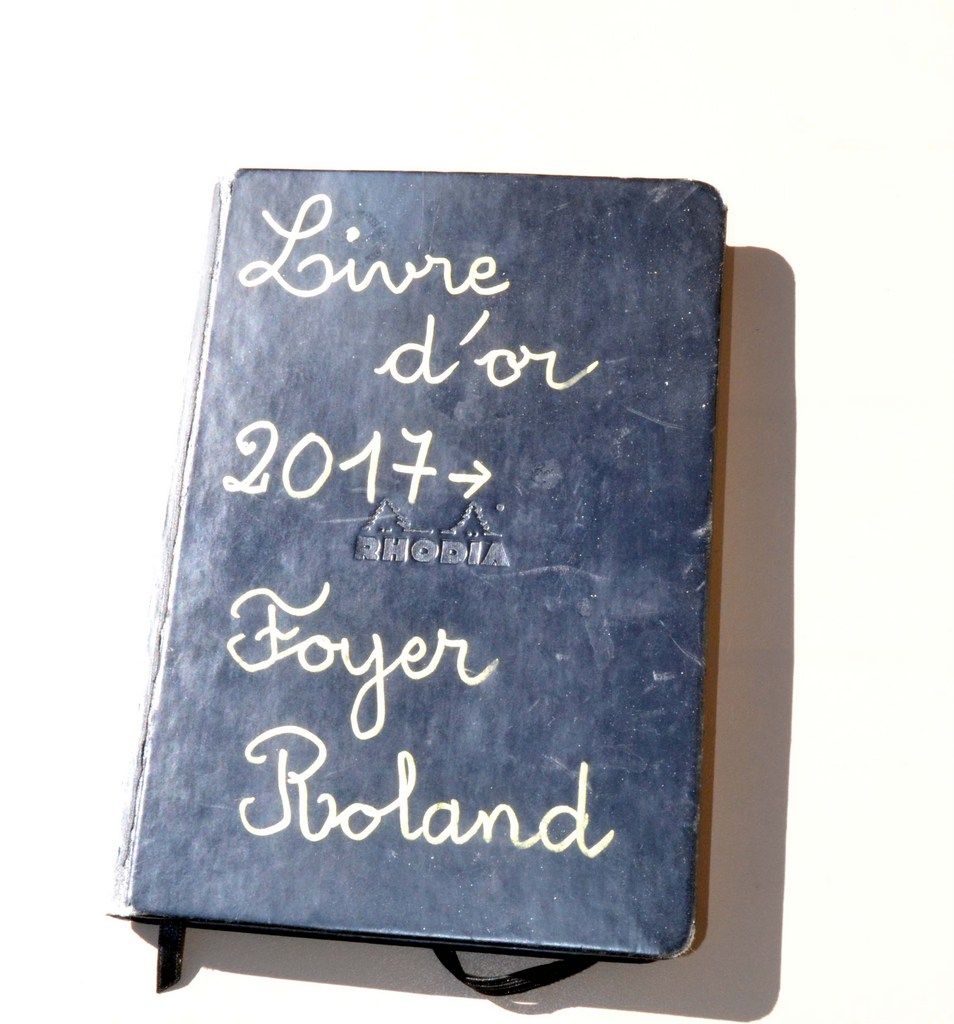 Livre
d'or
2017→
RHODIA
Foyer
Roland